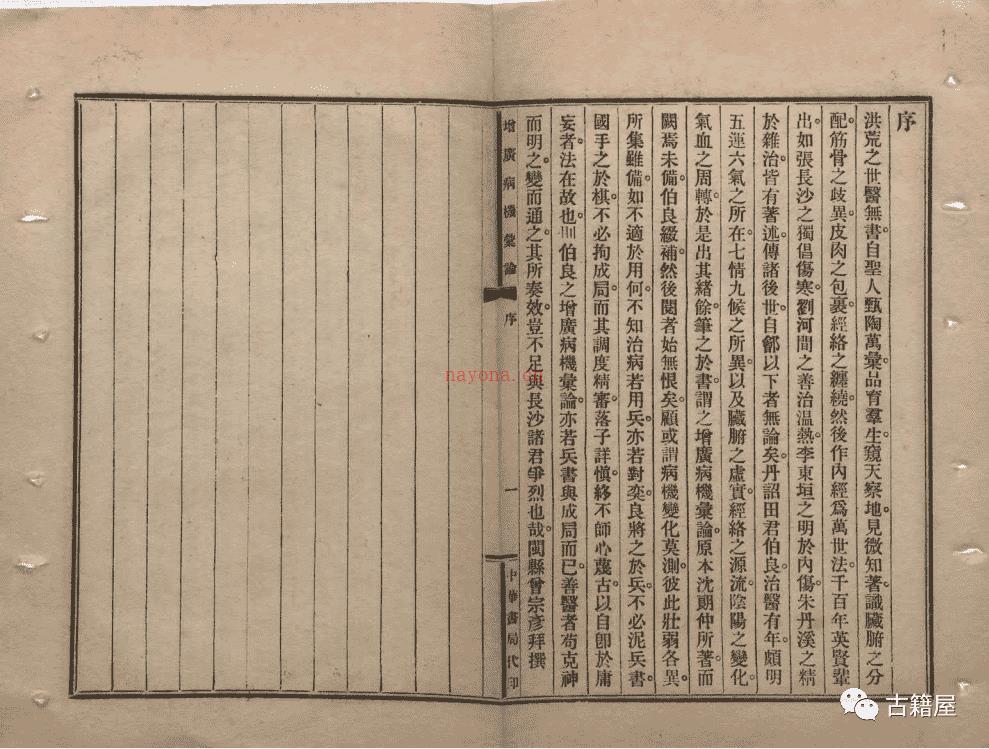 序
洪荒之世醫無書自聖人甄陶萬彙品育羣生窺天察地見微知著識臟腑之分
配筋骨之歧異皮肉之包裹經絡之纏繞然後作內經爲萬世法千百年英賢輩
出如張長沙之獨倡傷寒劉河間之善治温熱李東垣之明於內傷朱丹溪之精
於雜治皆有著述傳諸後世自鄶以下者無論矣丹詔田君伯良治醫有年頗明
五運六氣之所在七情九候之所異以及臟腑之虛實經絡之源流陰陽之變化
氣血之周轉於是出其緒餘筆之於書謂之增廣病機彙論原本沈朗仲所著而
闕焉未備伯良綴補然後閱者始無恨矣顧或謂病機變化莫測彼此壯弱各異
所集雖備如不適於用何不知治病若用兵亦若對奕良將之於兵不必泥兵書
國手之於棋不必拘成局而其調度精審落子詳慎終不師心蔑古以自卽於庸
妄者法在故也則伯良之增廣病機彙論亦若兵書與成局而已善醫者苟克神
而明之變而通之其所奏效豈不足與長沙諸君爭烈也哉閩縣曾宗彥拜撰
增廣病機彙論
序
一
中華書局代印
nayona.cn
古籍屋